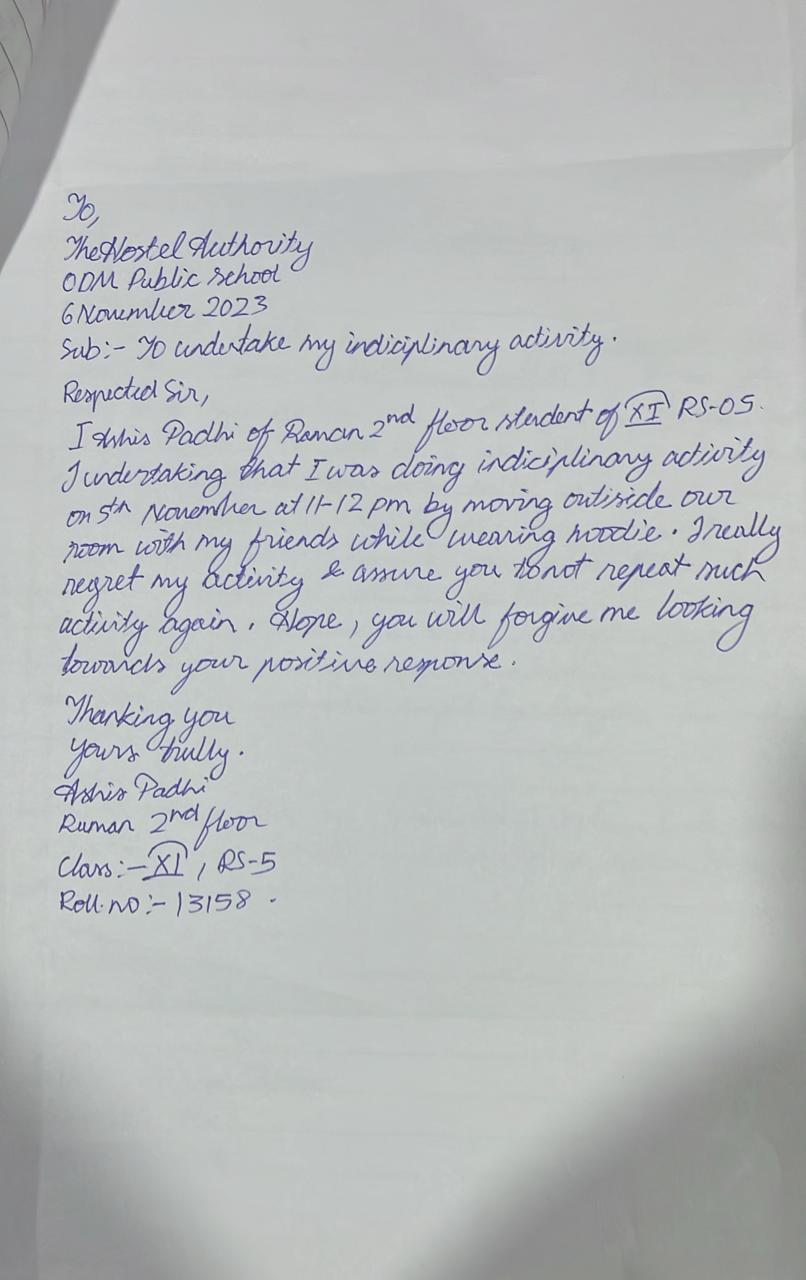 To,
The Hostel Authority
ODM Public School
6 November 2023
Sub:- To undertake my indiciplinary activity.
Respected Sir,
I Ashis Padhi of Raman 2nd floor student of XI RS-05.
I undertaking that I was doing indiciplinary activity
on 5th November at 11-12 pm by moving outiside our
room with my friends while wearing hoodie. I really
regret my activity & assure you to not repeat such
activity again. Hope, you will forgive me looking
towards your positive response.
Thanking you
Yours trully.
Ashis Padhi
Raman 2nd floor
Class:- XI, RS-5
Roll.no:- 13158.